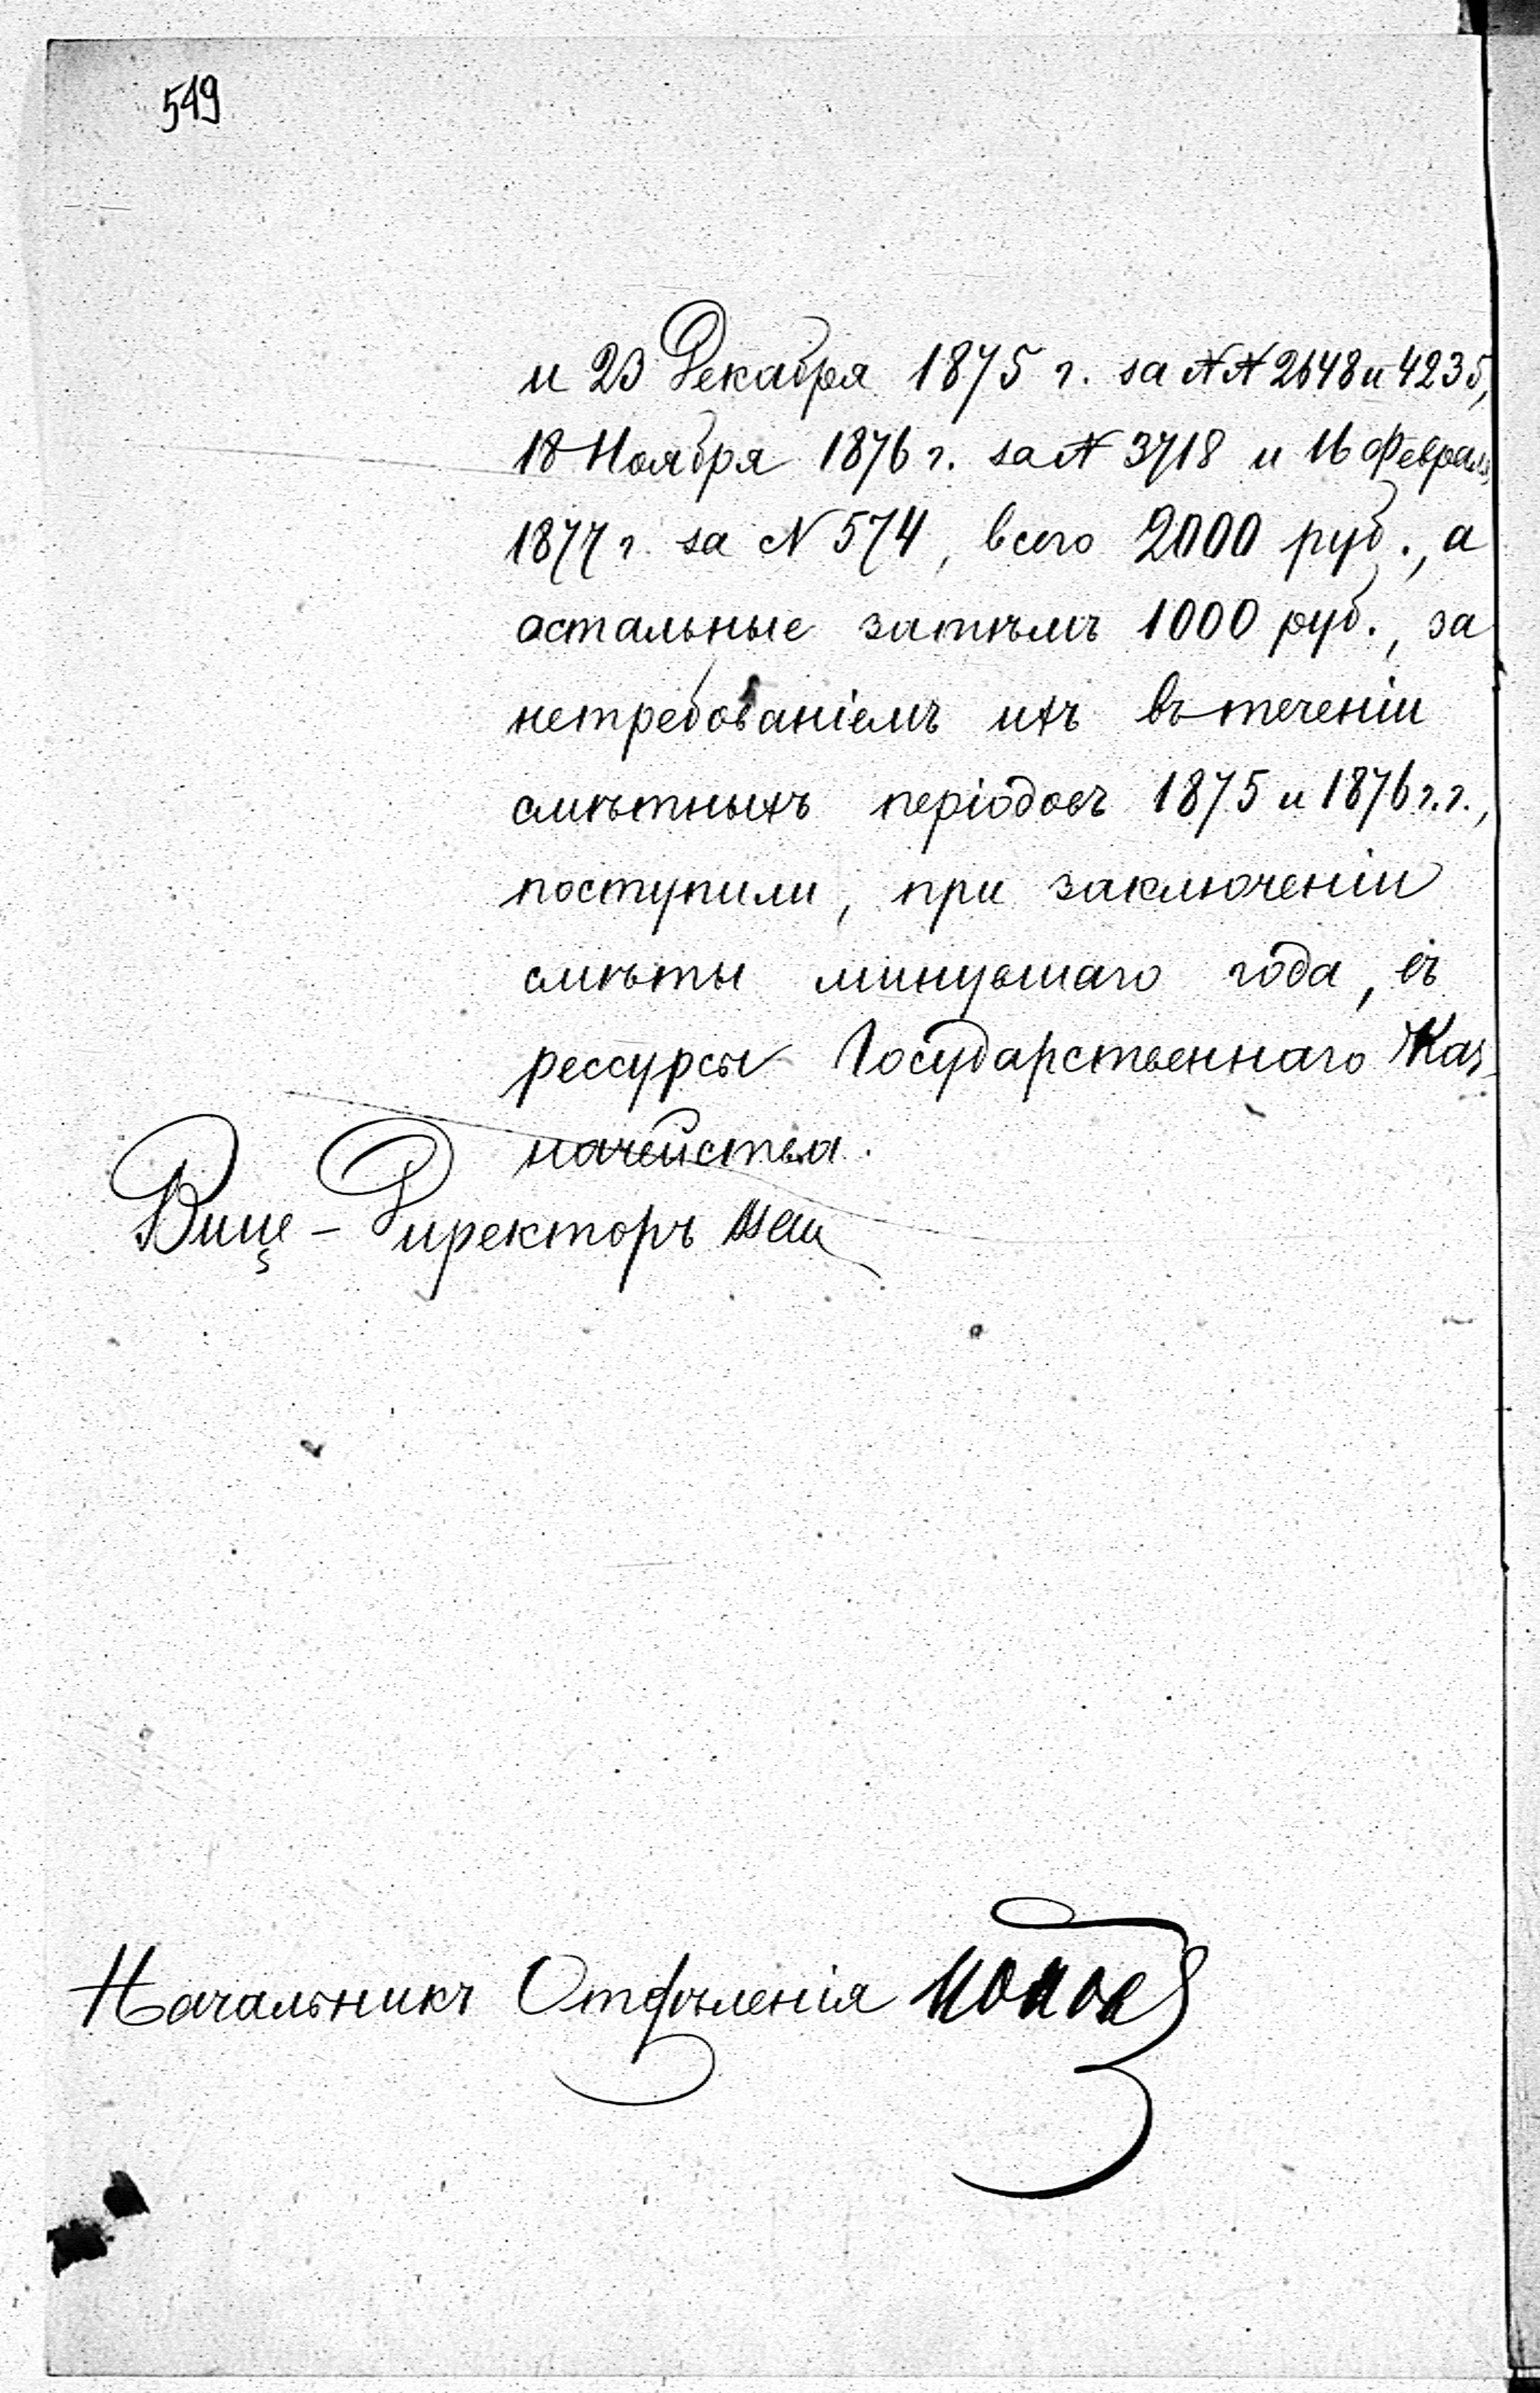 549
и 23 Декабря 1875 г. за №№ 2648 и 4235,
18 Ноября 1876 г. за № 3718 и 16 Февраля
1877 г. за № 574, всего 2000 руб., а
остальные затѣмъ 1000 руб., за
нетребованіемъ ихъ въ теченіи
смѣтныхъ періодовъ 1875 и 1876 г.г.,
поступили, при заключеніи
смѣты минувшаго года, въ
рессурсы Государственнаго Каз-
начейства.
Вице-Директоръ
Начальникъ Отдѣленія